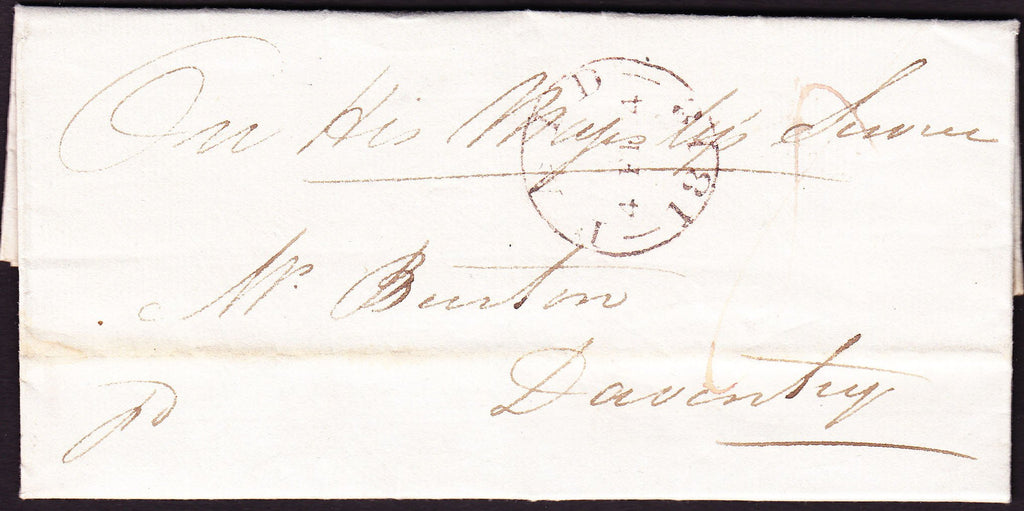 On His Majesty's Service
Mr. Burton
Daventry
pd